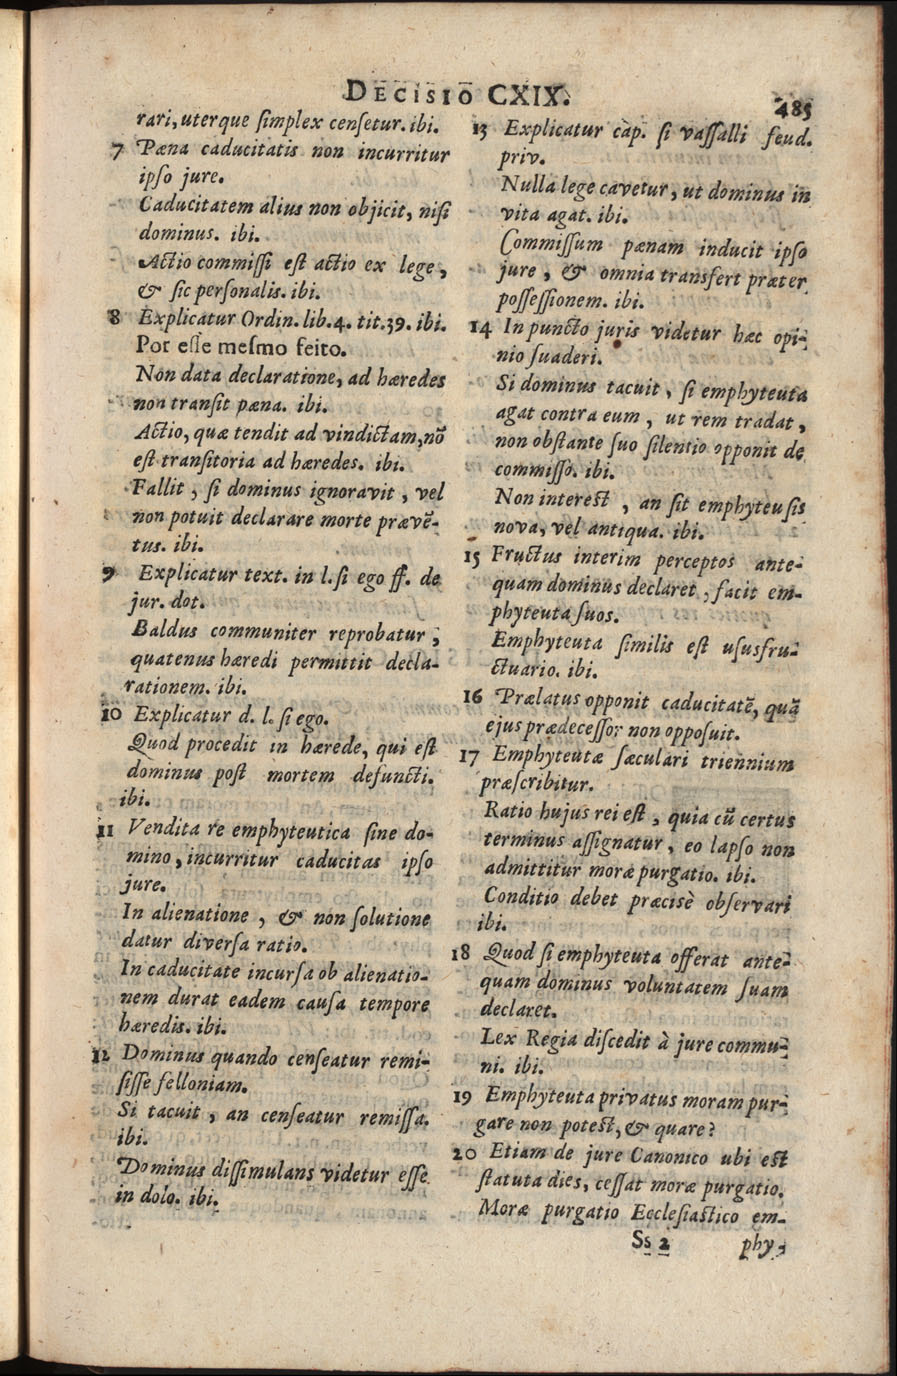 DECISIO CXIX.
485
rari, uterque ſimplex cenſetur. ibi.
7 Pæna caducitatis non incurritur
ipſo jure.
Caducitatem alius non objicit, niſi
dominus. ibi.
Actio commiſſi eſt actio ex lege,
& ſic perſonalis. ibi.
8 Explicatur Ordin. lib. 4. tit. 39. ibi.
Por eſſe meſmo feito.
Non data declaratione, ad hæredes
non tranſit pæna. ibi.
Actio, quæ tendit ad vindictam, nõ
eſt tranſitoria ad hæredes. ibi.
Fallit, ſi dominus ignoravit, vel
non potuit declarare morte prævẽ-
tus. ibi.
9 Explicatur text. in l. ſi ego ff. de
jur. dot.
Baldus communiter reprobatur,
quatenus hæredi permittit decla-
rationem. ibi.
10 Explicatur d. l. ſi ego.
Quod procedit in hærede, qui eſt
dominus poſt mortem defuncti.
ibi.
11 Vendita re emphyteutica ſine do-
mino, incurritur caducitas ipſo
jure.
In alienatione, & non ſolutione
datur diverſa ratio.
In caducitate incurſa ob alienatio-
nem durat eadem cauſa tempore
hæredis. ibi.
12 Dominus quando cenſeatur remi-
ſiſſe felloniam.
Si tacuit, an cenſeatur remiſſa.
ibi.
Dominus diſſimulans videtur eſſe
in dolo. ibi.
13 Explicatur càp. ſi vaſſalli feud.
priv.
Nulla lege cavetur, ut dominus in
vita agat. ibi.
Commiſſum pænam inducit ipſo
jure, & omnia transfert præter
poſſeſſionem. ibi.
14 In puncto juris videtur hæc opi-
nio ſuaderi.
Si dominus tacuit, ſi emphyteuta
agat contra eum, ut rem tradat,
non obſtante ſuo ſilentio opponit de
commiſſo. ibi.
Non intereſt, an ſit emphyteuſis
nova, vel antiqua. ibi.
15 Fructus interim perceptos ante-
quam dominus declaret, facit em-
phyteuta ſuos.
Emphyteuta ſimilis eſt uſusfru-
ctuario. ibi.
16 Prælatus opponit caducitatẽ, quã
ejus prædeceſſor non oppoſuit.
17 Emphyteutæ ſæculari triennium
præſcribitur.
Ratio hujus rei eſt, quia cũ certus
terminus aſſignatur, eo lapſo non
admittitur moræ purgatio. ibi.
Conditio debet præcisè obſervari
ibi.
18 Quod ſi emphyteuta offerat ante-
quam dominus voluntatem ſuam
declaret.
Lex Regia diſcedit à jure commu-
ni. ibi.
19 Emphyteuta privatus moram pur-
gare non poteſt, & quare?
20 Etiam de jure Canonico ubi eſt
ſtatuta dies, ceſſat moræ purgatio.
Moræ purgatio Eccleſiaſtico em-
Ss 2
phy-